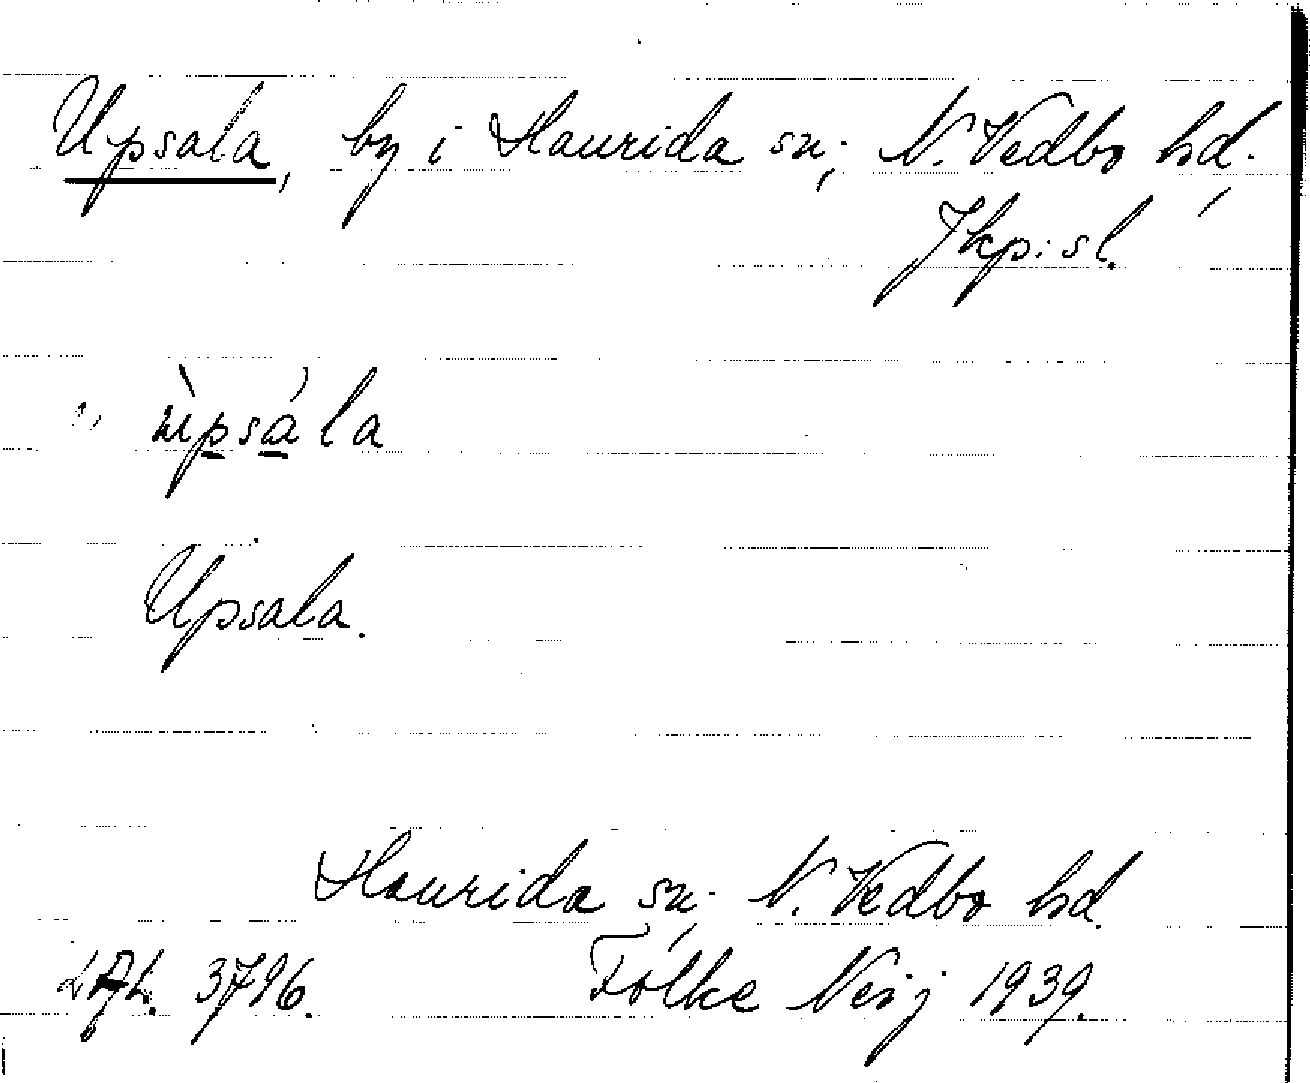 Upsala, by i Haurida sn, N. Vedbo hd.,
Jkp:s l.
ùpsála
Upsala.
Haurida sn, N. Vedbo hd.
3796. Folke Neij 1939.